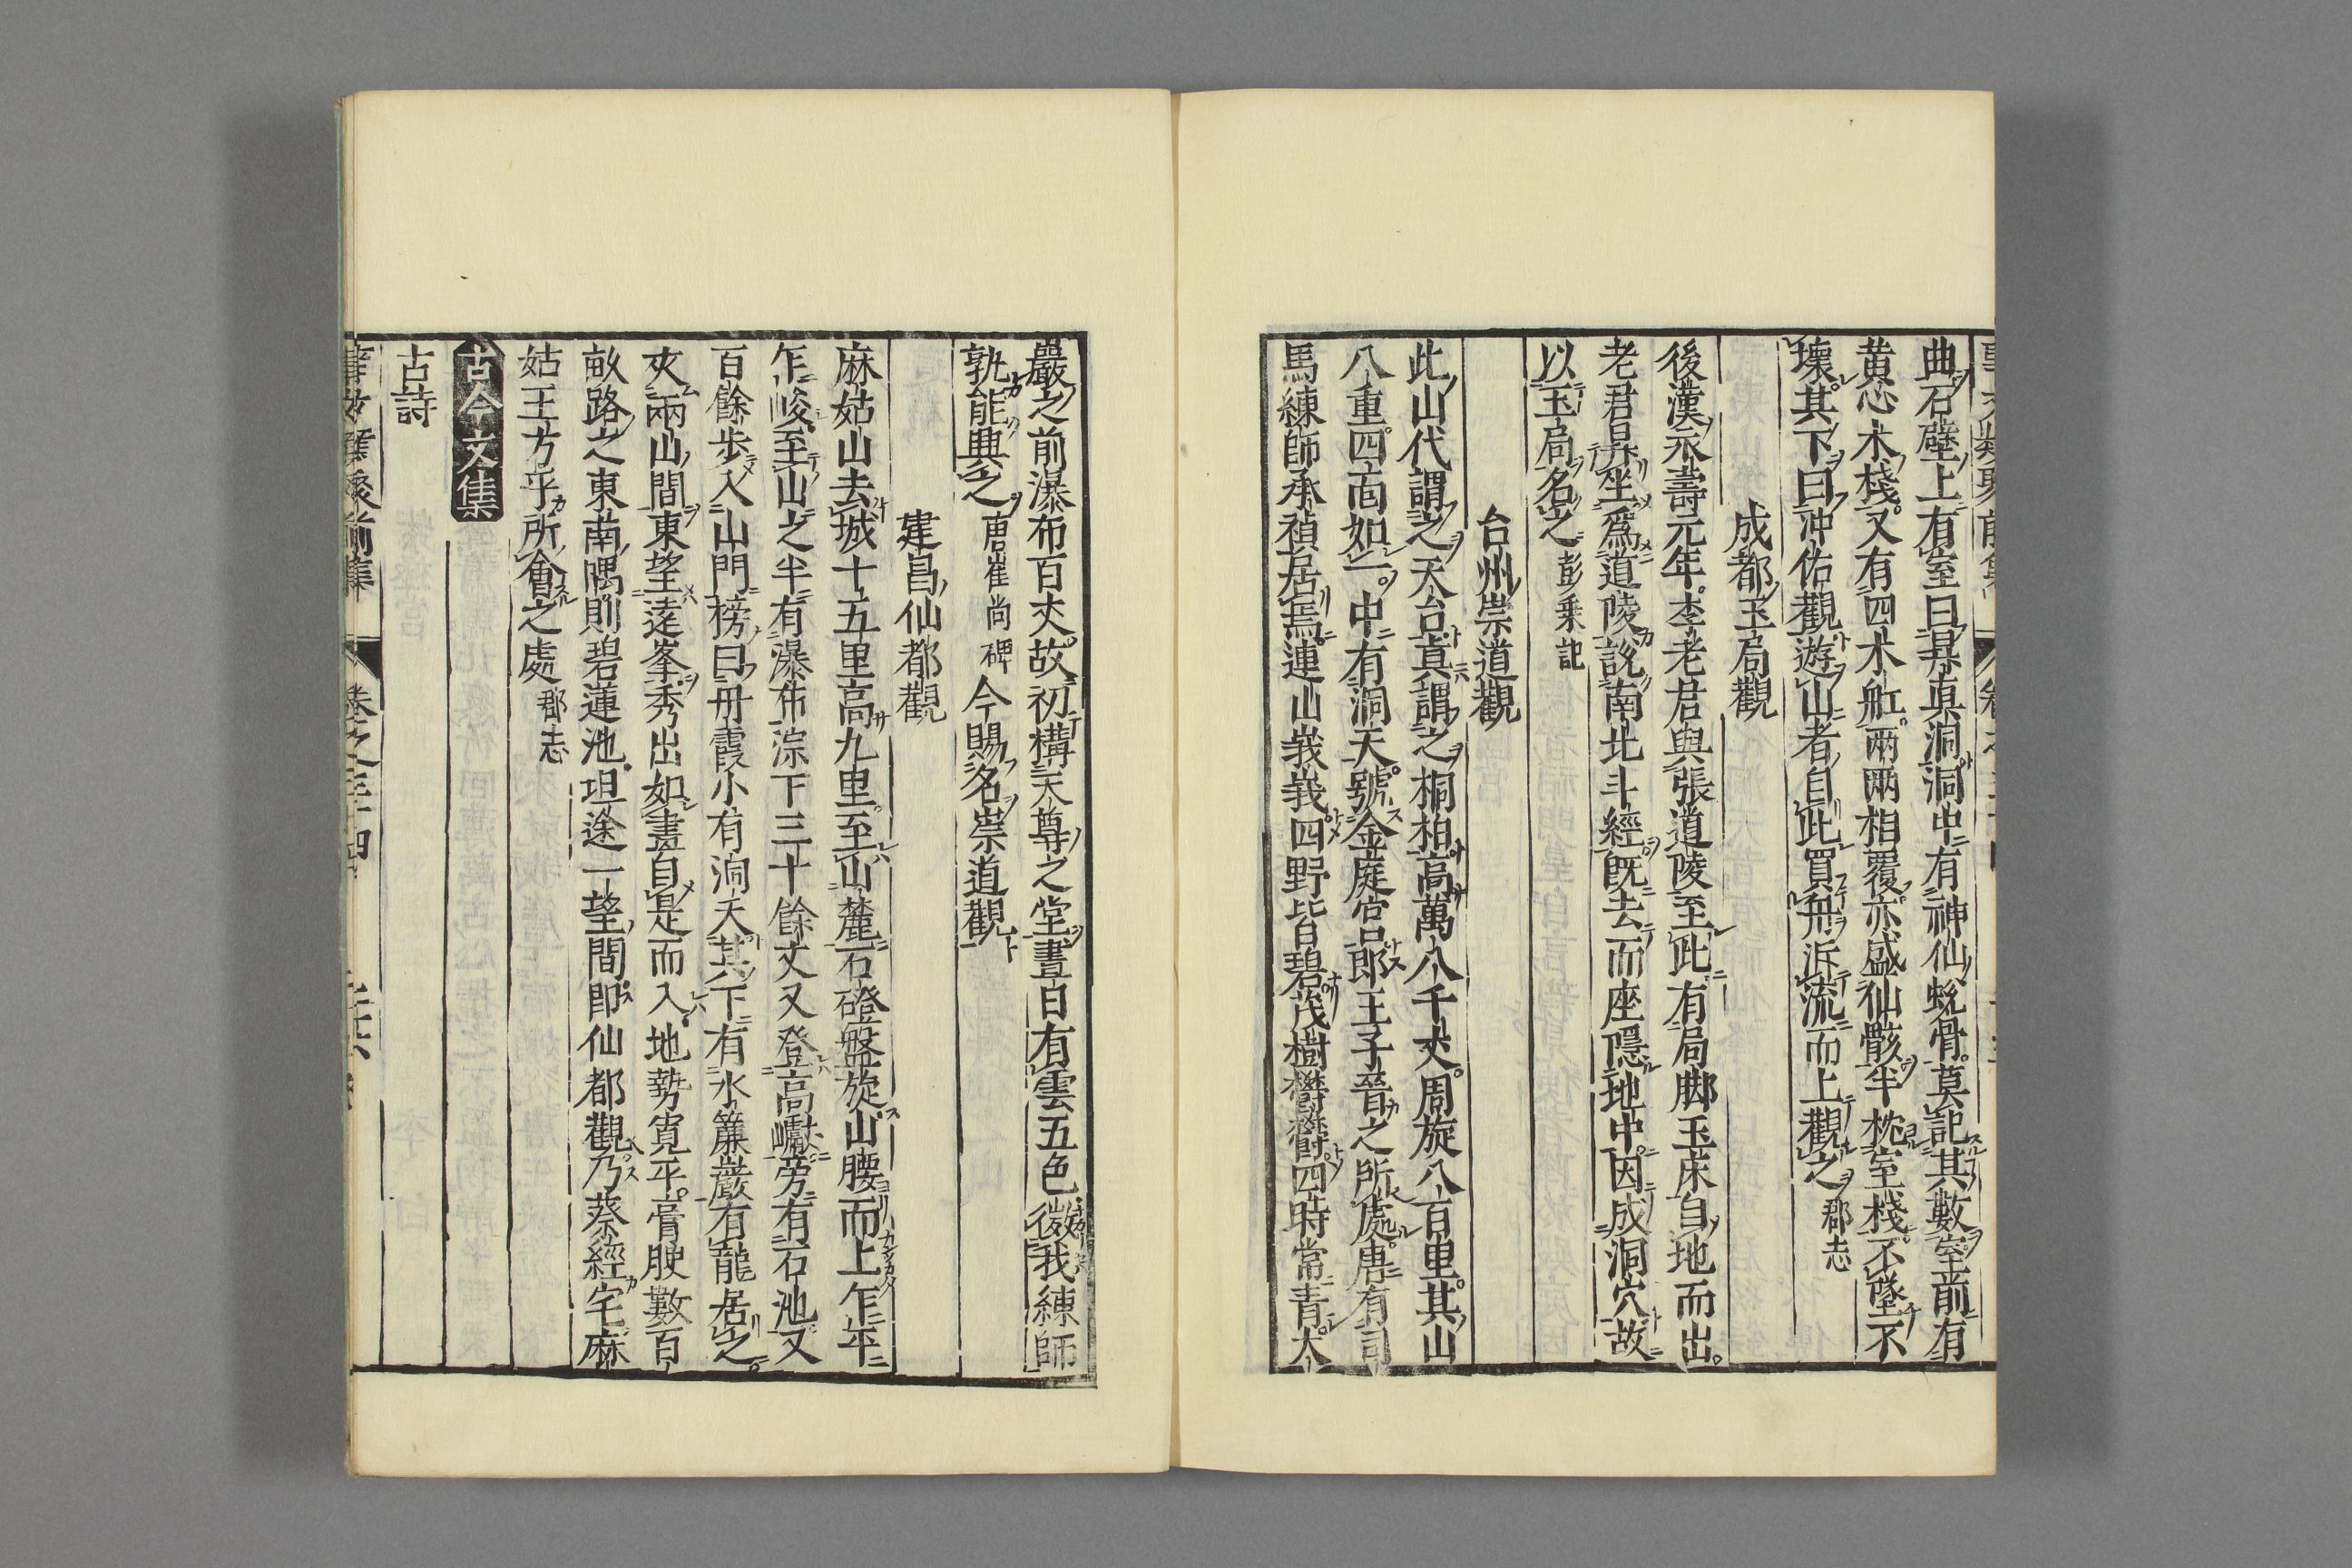 曲石壁上有室曰昇真洞洞中有神仙蛻骨莫記其數室前有
黄心木棧又有四木舡兩兩相覆亦盛仙骸半枕室棧不墜不
壊其下曰沖佑觀遊山者自此買舟泝流而上觀之郡志
成都玉局觀
後漢永壽元年李老君與張道陵至此有局脚玉床自地而出
老君昇坐爲道陵說南北斗經旣去而座隱地中因成洞穴故
以玉局名之彭乗記
台州崇道觀
此山代謂之天台真謂之桐柏高萬八千丈周旋八百里其山
八重四面如一中有洞天號金庭宫即王子晉之所處唐有司
馬練師承禎居焉連山峩峩四野皆碧茂樹欝欝四時常青大
巖之前瀑布百丈故初構天尊之堂晝日有雲五色微我練師
孰能興之唐崔尚碑今賜名崇道觀
建昌仙都觀
麻姑山去城十五里高九里至山麓石磴盤旋山腰而上乍平
乍峻至山之半有瀑布淙下三十餘丈又登高巘旁有石池又
百餘歩入山門榜曰丹霞小有洞天其下有水簾巖有龍居之
夾兩山間東望逺峯秀出如畫自是而入地勢寛平膏腴數百
畝路之東南隅則碧蓮池坦途一望間即仙都觀乃蔡經宅麻
姑王方平所會之處郡志
古今文集
古詩
卷之三十四